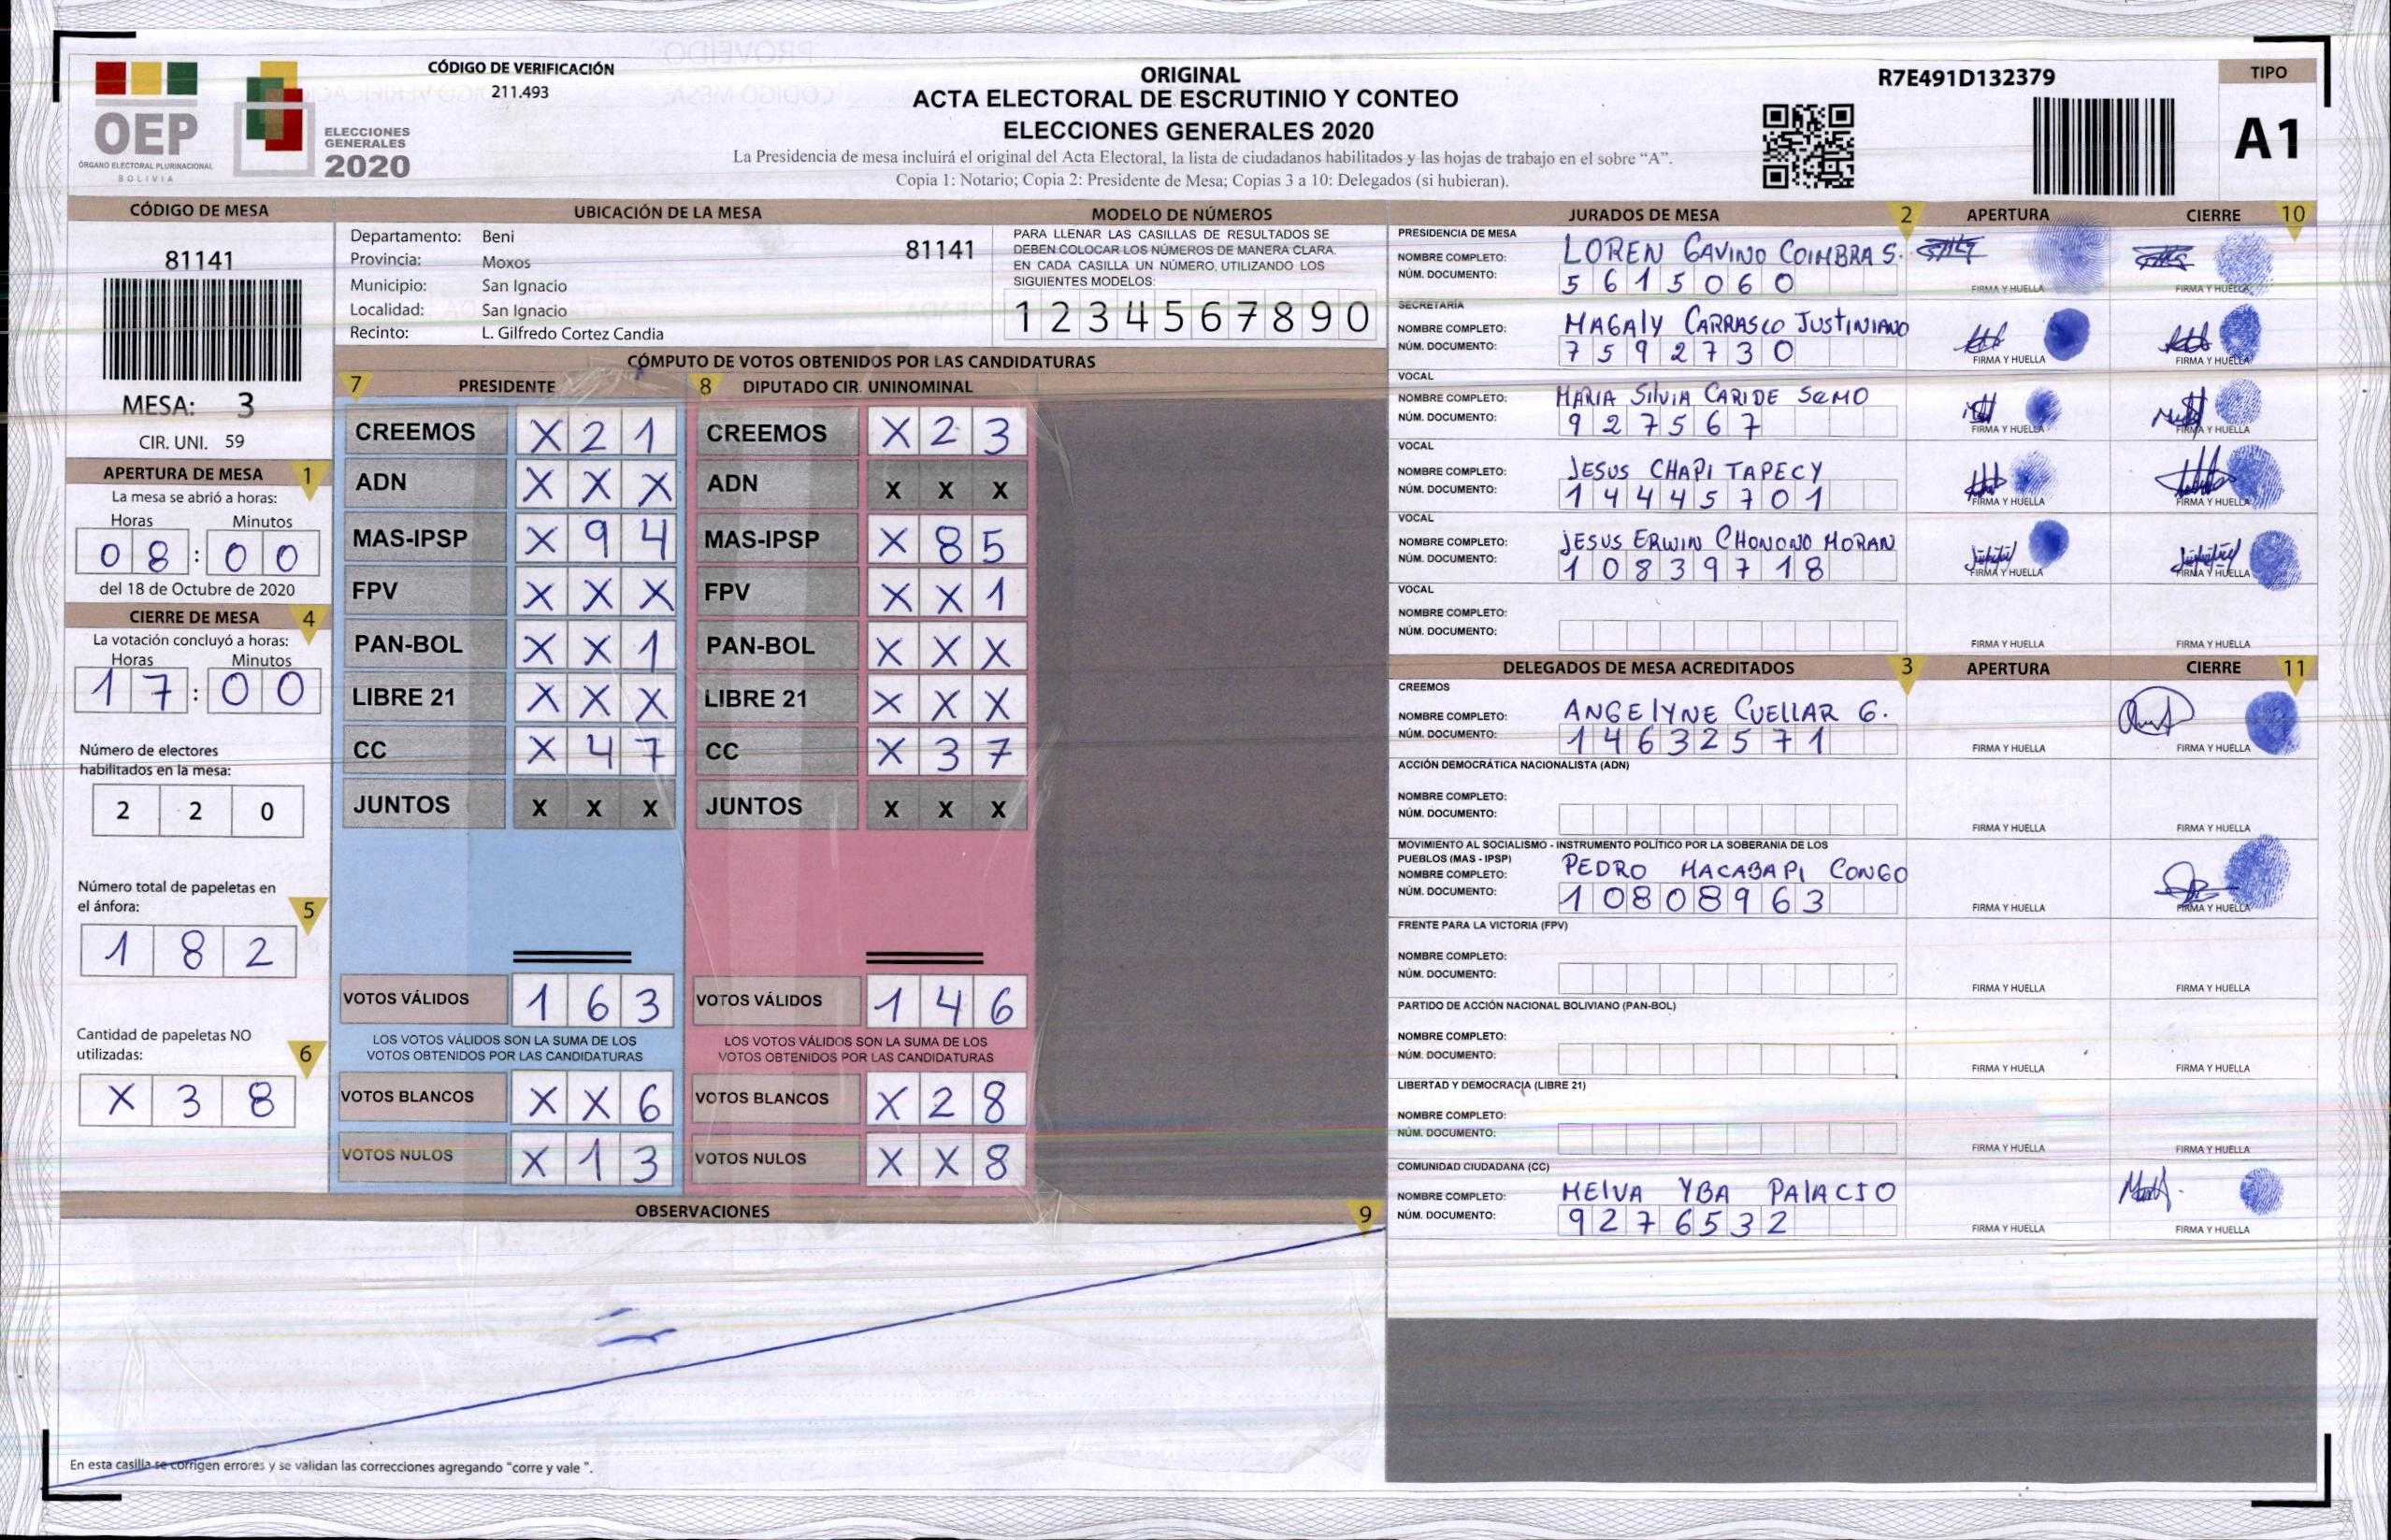 CÓDIGO DE VERIFICACIÓN
211.493
OEP
ÓRGANO ELECTORAL PLURINACIONAL
BOLIVIA
ELECCIONES
GENERALES
2020
ORIGINAL
ACTA ELECTORAL DE ESCRUTINIO Y CONTEO
ELECCIONES GENERALES 2020
La Presidencia de mesa incluirá el original del Acta Electoral, la lista de ciudadanos habilitados y las hojas de trabajo en el sobre “A”.
Copia 1: Notario; Copia 2: Presidente de Mesa; Copias 3 a 10: Delegados (si hubieran).
R7E491D132379
TIPO
A1
CÓDIGO DE MESA
81141
MESA: 3
CIR. UNI. 59
APERTURA DE MESA 1
La mesa se abrió a horas:
Horas Minutos
0 8 : 0 0
del 18 de Octubre de 2020
CIERRE DE MESA 4
La votación concluyó a horas:
Horas Minutos
1 7 : 0 0
Número de electores
habilitados en la mesa:
2 2 0
Número total de papeletas en
el ánfora: 5
1 8 2
Cantidad de papeletas NO
utilizadas: 6
X 3 8
UBICACIÓN DE LA MESA
Departamento: Beni
Provincia: Moxos
Municipio: San Ignacio
Localidad: San Ignacio
Recinto: L. Gilfredo Cortez Candia
81141
MODELO DE NÚMEROS
PARA LLENAR LAS CASILLAS DE RESULTADOS SE
DEBEN COLOCAR LOS NÚMEROS DE MANERA CLARA.
EN CADA CASILLA UN NÚMERO, UTILIZANDO LOS
SIGUIENTES MODELOS:
1 2 3 4 5 6 7 8 9 0
CÓMPUTO DE VOTOS OBTENIDOS POR LAS CANDIDATURAS
7 PRESIDENTE
CREEMOS X 2 1
ADN X X X
MAS-IPSP X 9 4
FPV X X X
PAN-BOL X X 1
LIBRE 21 X X X
CC X 4 7
JUNTOS X X X
VOTOS VÁLIDOS 1 6 3
LOS VOTOS VÁLIDOS SON LA SUMA DE LOS
VOTOS OBTENIDOS POR LAS CANDIDATURAS
VOTOS BLANCOS X X 6
VOTOS NULOS X 1 3
8 DIPUTADO CIR. UNINOMINAL
CREEMOS X 2 3
ADN X X X
MAS-IPSP X 8 5
FPV X X 1
PAN-BOL X X X
LIBRE 21 X X X
CC X 3 7
JUNTOS X X X
VOTOS VÁLIDOS 1 4 6
LOS VOTOS VÁLIDOS SON LA SUMA DE LOS
VOTOS OBTENIDOS POR LAS CANDIDATURAS
VOTOS BLANCOS X 2 8
VOTOS NULOS X X 8
OBSERVACIONES 9
En esta casilla se corrigen errores y se validan las correcciones agregando “corre y vale ”.
JURADOS DE MESA 2 APERTURA CIERRE 10
PRESIDENCIA DE MESA
NOMBRE COMPLETO: LOREN GAVINO COIMBRA S.
NÚM. DOCUMENTO: 5 6 1 5 0 6 0
FIRMA Y HUELLA FIRMA Y HUELLA
SECRETARÍA
NOMBRE COMPLETO: MAGALY CARRASCO JUSTINIANO
NÚM. DOCUMENTO: 7 5 9 2 7 3 0
FIRMA Y HUELLA FIRMA Y HUELLA
VOCAL
NOMBRE COMPLETO: MARIA SILVIA CARIDE SEMO
NÚM. DOCUMENTO: 9 2 7 5 6 7
FIRMA Y HUELLA FIRMA Y HUELLA
VOCAL
NOMBRE COMPLETO: JESUS CHAPI TAPECY
NÚM. DOCUMENTO: 1 4 4 4 5 7 0 1
FIRMA Y HUELLA FIRMA Y HUELLA
VOCAL
NOMBRE COMPLETO: JESUS ERWIN CHONONO MORAN
NÚM. DOCUMENTO: 1 0 8 3 9 7 1 8
FIRMA Y HUELLA FIRMA Y HUELLA
VOCAL
NOMBRE COMPLETO:
NÚM. DOCUMENTO:
FIRMA Y HUELLA FIRMA Y HUELLA
DELEGADOS DE MESA ACREDITADOS 3 APERTURA CIERRE 11
CREEMOS
NOMBRE COMPLETO: ANGELYNE CUELLAR G.
NÚM. DOCUMENTO: 1 4 6 3 2 5 7 1
FIRMA Y HUELLA FIRMA Y HUELLA
ACCIÓN DEMOCRÁTICA NACIONALISTA (ADN)
NOMBRE COMPLETO:
NÚM. DOCUMENTO:
FIRMA Y HUELLA FIRMA Y HUELLA
MOVIMIENTO AL SOCIALISMO - INSTRUMENTO POLÍTICO POR LA SOBERANIA DE LOS
PUEBLOS (MAS - IPSP)
NOMBRE COMPLETO: PEDRO MACABAPI CONGO
NÚM. DOCUMENTO: 1 0 8 0 8 9 6 3
FIRMA Y HUELLA FIRMA Y HUELLA
FRENTE PARA LA VICTORIA (FPV)
NOMBRE COMPLETO:
NÚM. DOCUMENTO:
FIRMA Y HUELLA FIRMA Y HUELLA
PARTIDO DE ACCIÓN NACIONAL BOLIVIANO (PAN-BOL)
NOMBRE COMPLETO:
NÚM. DOCUMENTO:
FIRMA Y HUELLA FIRMA Y HUELLA
LIBERTAD Y DEMOCRACIA (LIBRE 21)
NOMBRE COMPLETO:
NÚM. DOCUMENTO:
FIRMA Y HUELLA FIRMA Y HUELLA
COMUNIDAD CIUDADANA (CC)
NOMBRE COMPLETO: MELVA YBA PALACIO
NÚM. DOCUMENTO: 9 2 7 6 5 3 2
FIRMA Y HUELLA FIRMA Y HUELLA